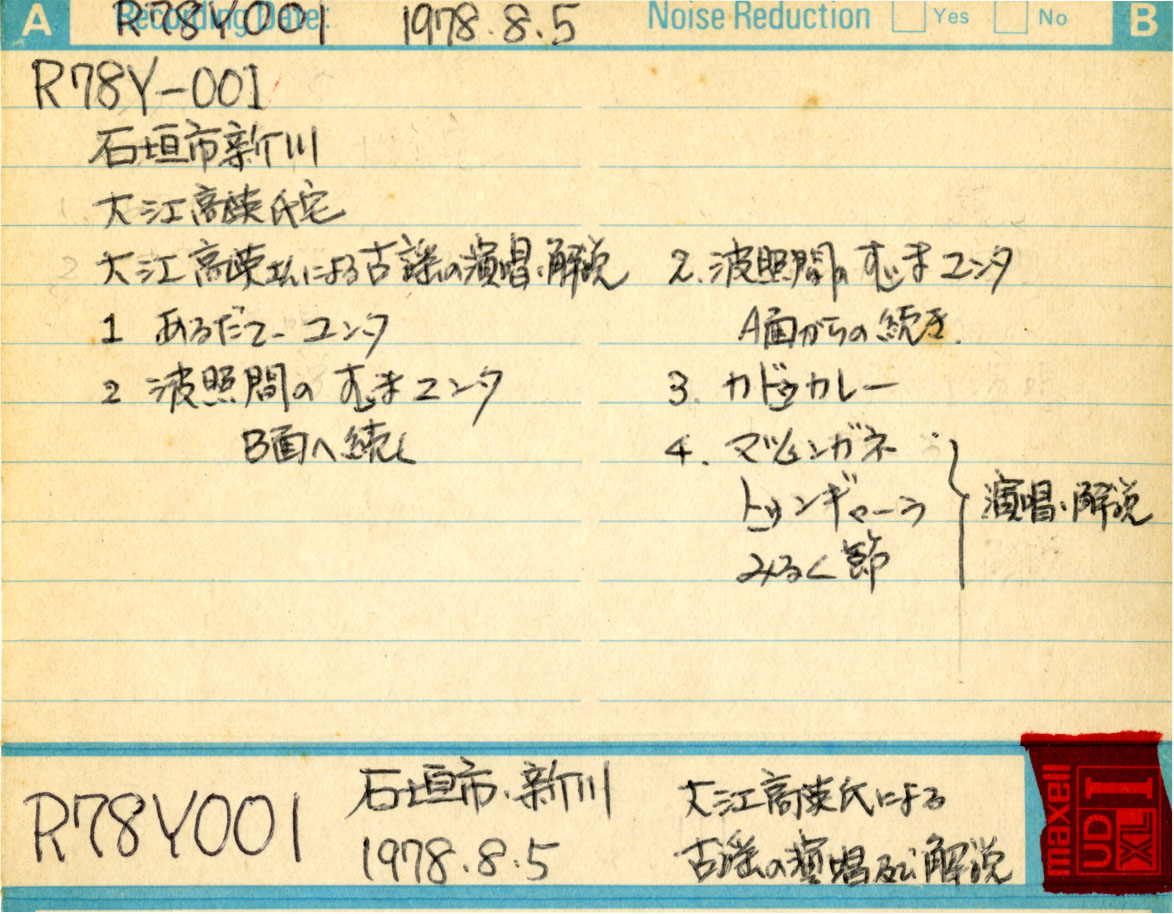 A Recording Date: R78Y001 1978.8.5 Noise Reduction Yes No B
R78Y-001
石垣市新川
大江高英氏宅
大江高英氏による古謡の演唱・解説
1 あるだてーユンタ
2 波照間の むまユンタ
B面へ続く
2. 波照間の むまユンタ
A面からの続き.
3. カドゥカレー
4. マツンガネ
トゥンギャーラ
みるく節
演唱・解説
R78Y001
石垣市.新川
1978.8.5
大江高英氏による
古謡の演唱及び解説
maxell
UD
XL I